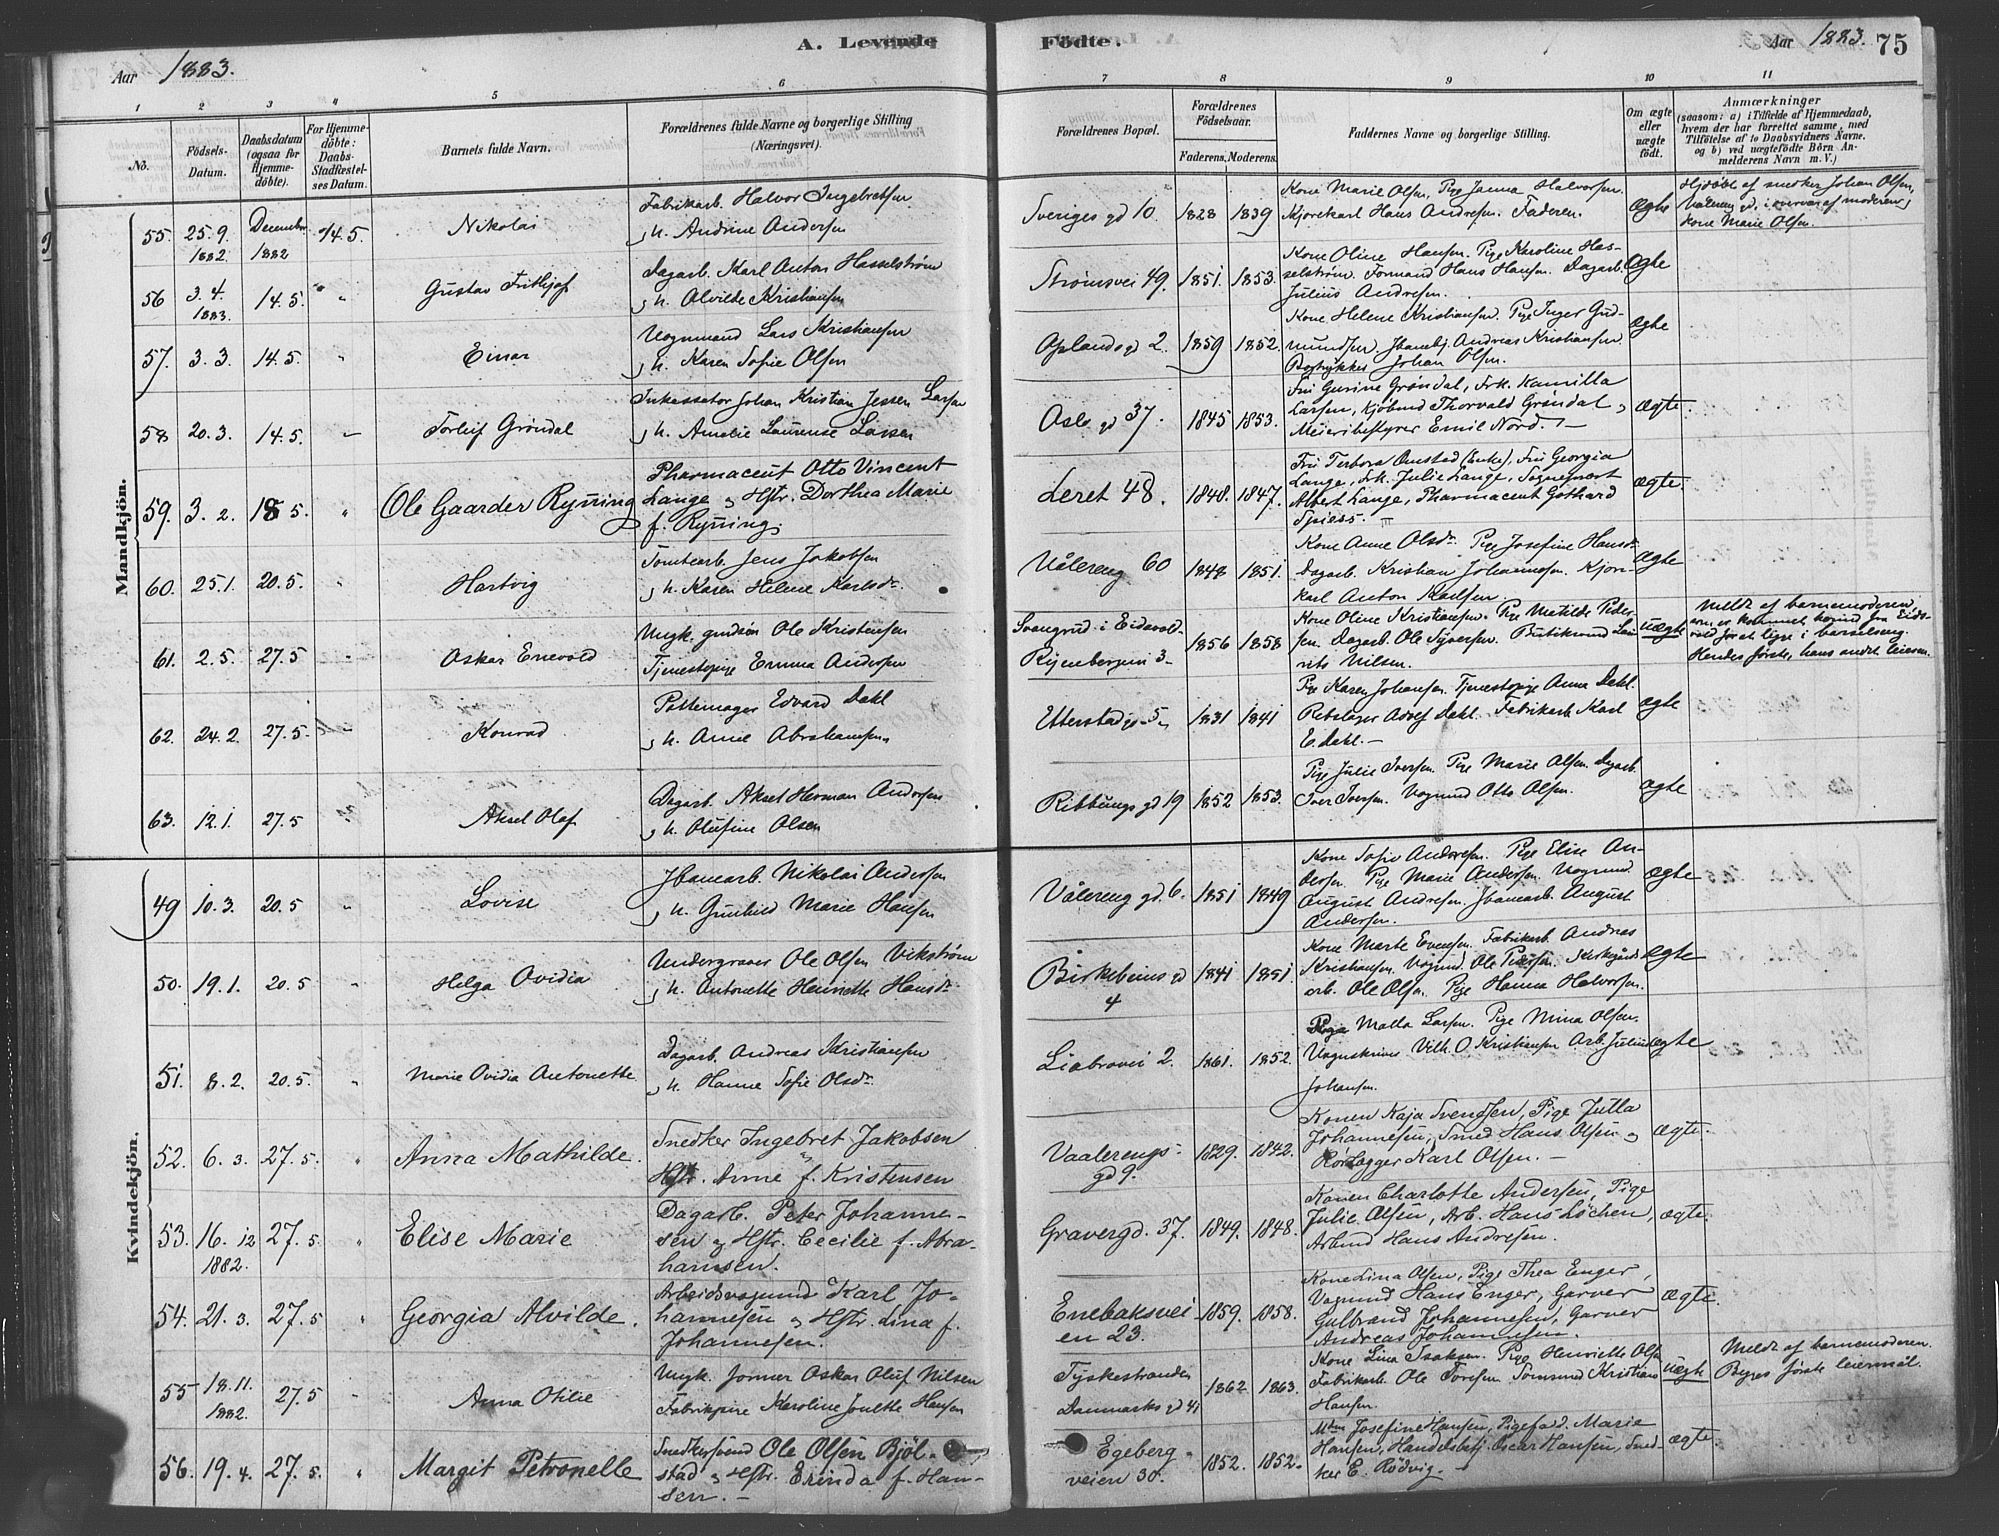 A. Levende Födte.
Aar 1883.
Aar 1883. 75
1 2 3 4 5 6 7 8 9 10 11
No.
Födsels-Datum.
Daabsdatum (ogsaa for Hjemmedöbte).
For Hjemmedöbte: Daabs-Stadfæstelses Datum.
Barnets fulde Navn.
Forældrenes fulde Navne og borgerlige Stilling (Næringsvei).
Forældrenes Bopæl.
Forældrenes Födselsaar.
Faderens. Moderens.
Faddernes Navne og borgerlige Stilling.
Om ægte eller uægte födt.
Anmærkninger
(saasom: a) i Tilfælde af Hjemmedaab, hvem der har forrettet samme, med Tilföielse af to Daabsvidners Navne. og b) ved uægtefödte Börn Anmelderens Navn m. V.)
Mandkjön.
55. 25.9. 1882. December 1882 14.5. Nikolai
Fabrikarb. Halvor Ingebretsen
h. Andrine Andersen
Sveriges gd 10. 1828 1839
Kone Marie Olsen, Pige Janna Halvorsen.
Kjørekarl Hans Andresen. Faderen.
Ægte
Hjdöbt af snedker Johan Olsen,
Valereng gd. i overvær af moderen,
kone Marie Olsen.
56 3.4. 1883. 14.5. " Gustav Frithjof
Dagarb. Karl Anton Hasselstrøm
h. Alvilde Kristiansen
Strømsvei 49. 1851. 1853.
Kone Oline Hansen. Pige Karoline Has-
selstrøm. Formand Hans Hansen. Dagarb.
Julius Andresen.
Ægte
57. 3.3. 14.5. " Einar
Vognmand Lars Kristiansen
h. Karen Sofie Olsen
Oplandsgd 2. 1859 1852.
Kone Helene Kristiansen. Pige Inger Gud-
mundsen Jbanebj. Andreas Kristiansen
Johan Olsen.
Ægte
58 20.3. 14.5. - Torleif Gröndal
Inkassator Johan Kristian Jessen Larsen
h. Amalie Laurense Larsen
Oslo gd 37. 1845 1853.
Fru Gurine Grøndal, Frk. Kamilla
Larsen, Kjøbmd Thorvald Grøndal,
Meieribestyrer Emil Nord. -
ægte.
59. 3.2. 18 5. " Ole Gaarder Rynning
Pharmaceut Otto Vincent
Lange og Hstr. Dorthea Marie
f. Rynning.
Leret 48. 1848. 1847.
Fru Terbora Onstad (Enke), Fru Georgia
Lange, Frk. Julie Lange, Sogneprest
Albert Lange, Pharmaceut Gothard
Spiess.
ægte.
60. 25.1. 20.5. " Hartvig
Tomtearb. Jens Jakobsen
h. Karen Helene Karlsdr.
Vålereng 60 1848 1851.
Kone Anne Olsdr. Pige Josefine Hansdr.
Dagarb. Kristian Johannesen. Kjøre-
karl Anton Karlsen.
Ægte
61. 2.5. 27.5 Oskar Enevold
Ungk. gårdsøn Ole Kristensen
Tjenestepige Emma Andersen
Svangrud i Eidsvold-
Ryenbergvei 3- 1856 1858
Kone Oline Kristiansen. Pige Matilde Peder-
sen Dagarb. Ole Syversen. Butiksmd Lau-
rits Nilsen.
uægte
Meldt af barnemoderen
som er kommet hertil fra Eids-
vold for at ligge i barselseng.
Hendes første, hans andet leierm.
62. 24.2. 27.5. Konrad
Pottemager Edvard Dahl
h. Anne Abrahamsen
Etterstadgd 5 1831 1841
Pige Karen Johansen. Tjenestepige Anna Dahl.
Rebslager Adolf Dahl. Fabrikarb. Karl
E. Dahl. -
ægte
63. 12.1. 27.5 Aksel Olaf
Dagarb. Aksel Herman Andersen
h. Olufine Olsen
Ribbungs gd 19 1852 1853.
Pige Julie Iversen. Pige Marie Olsen. Dagarb.
Iver Iversen. Vognmd Otto Olsen.
ægte
Kvindekjön.
49 10.3. 20.5 Lovise
Jbanearb. Nikolai Andersen
h. Gunhild Marie Hansen
Vålereng gd. 6. 1851 1849
Kone Sofie Andresen. Pige Elise An-
dersen. Pige Marie Andersen. Vognmd
August Andresen. Jbanearb. August
Andersen.
ægte
50. 19.1. 20.5 Helga Ovidia
Undergraver Ole Olsen Vikstrøm
h. Antonette Henriette Hansdr.
Birkebeins gd 4 1841 1851.
Kone Marte Evensen. Fabrikarb. Andreas
Kristiansen. Vognmd. Ole Pedersen. Kirkegårds
arb. Ole Olsen. Pige Hanna Halvorsen.
ægte
51. 8.2. 20.5. " Marie Ovidia Antonette
Dagarb. Andreas Kristiansen
h. Hanne Sofie Olsdr.
Liabrovei 2. 1861. 1852.
Pige Malla Larsen. Pige Mina Olsen.
Vilh. O Kristiansen Arb. Julius
Johansen.
ægte
52. 6.3. 27.5. " Anna Mathilde.
Snedker Ingebret Jakobsen
Hstr. Anne f. Kristensen
Vaalerengs-
gd 9. 1829. 1842.
Konen Kaja Svendsen, Pige Julla
Johannesen, Smed Hans Olsen og
Rørlægger Karl Olsen. -
ægte.
53. 16. 12 1882. 27.5. " Elise Marie
Dagarb. Peter Johanne-
sen og Hstr. Cecilie f. Abra-
hamsen.
Gravergd. 37. 1849. 1848.
Konen Charlotte Andersen, Pige
Julie Olsen, Arb. Hans Løchen,
Arbmd Hans Andresen.
ægte.
54. 21.3. 27.5 " Georgia Alvilde.
Arbeidsvognmd Karl Jo-
hannesen og Hstr. Lina f.
Johannesen.
Enebaksvei
en 23. 1859. 1858.
Kone Lina Olsen, Pige Thea Enger,
Vognmd Hans Enger, Garver
Gulbrand Johannesen, Garver
Andreas Johannesen.
ægte.
55 18.11. 1882. 27.5 Anna Otilie
Ungk. Former Oskar Oluf Nilsen
Fabrikpige Karoline Joulette Hansen
Tyskestranden
Danmarks gd 41 1862. 1863.
Kone Lina Isaksen. Pige Henriette Olsen
Fabrikarb. Ole Toresen. Tømmermd Kristian
Hansen.
uægte
Meldt af barnemoderen.
Begges første leiermål.
56. 19.4. 27.5. " Margit Petronelle
Snedkersvend Ole Olsen Bjöl-
stad og Hstr. Erinda f. Han-
sen. -
Egeberg-
veien 30. 1852. 1852.
Josefine Hansen, Pige Marie
Hansen, Handelsbetj. Oscar Hansen, Sned-
ker E. Rödvig. -
ægte.